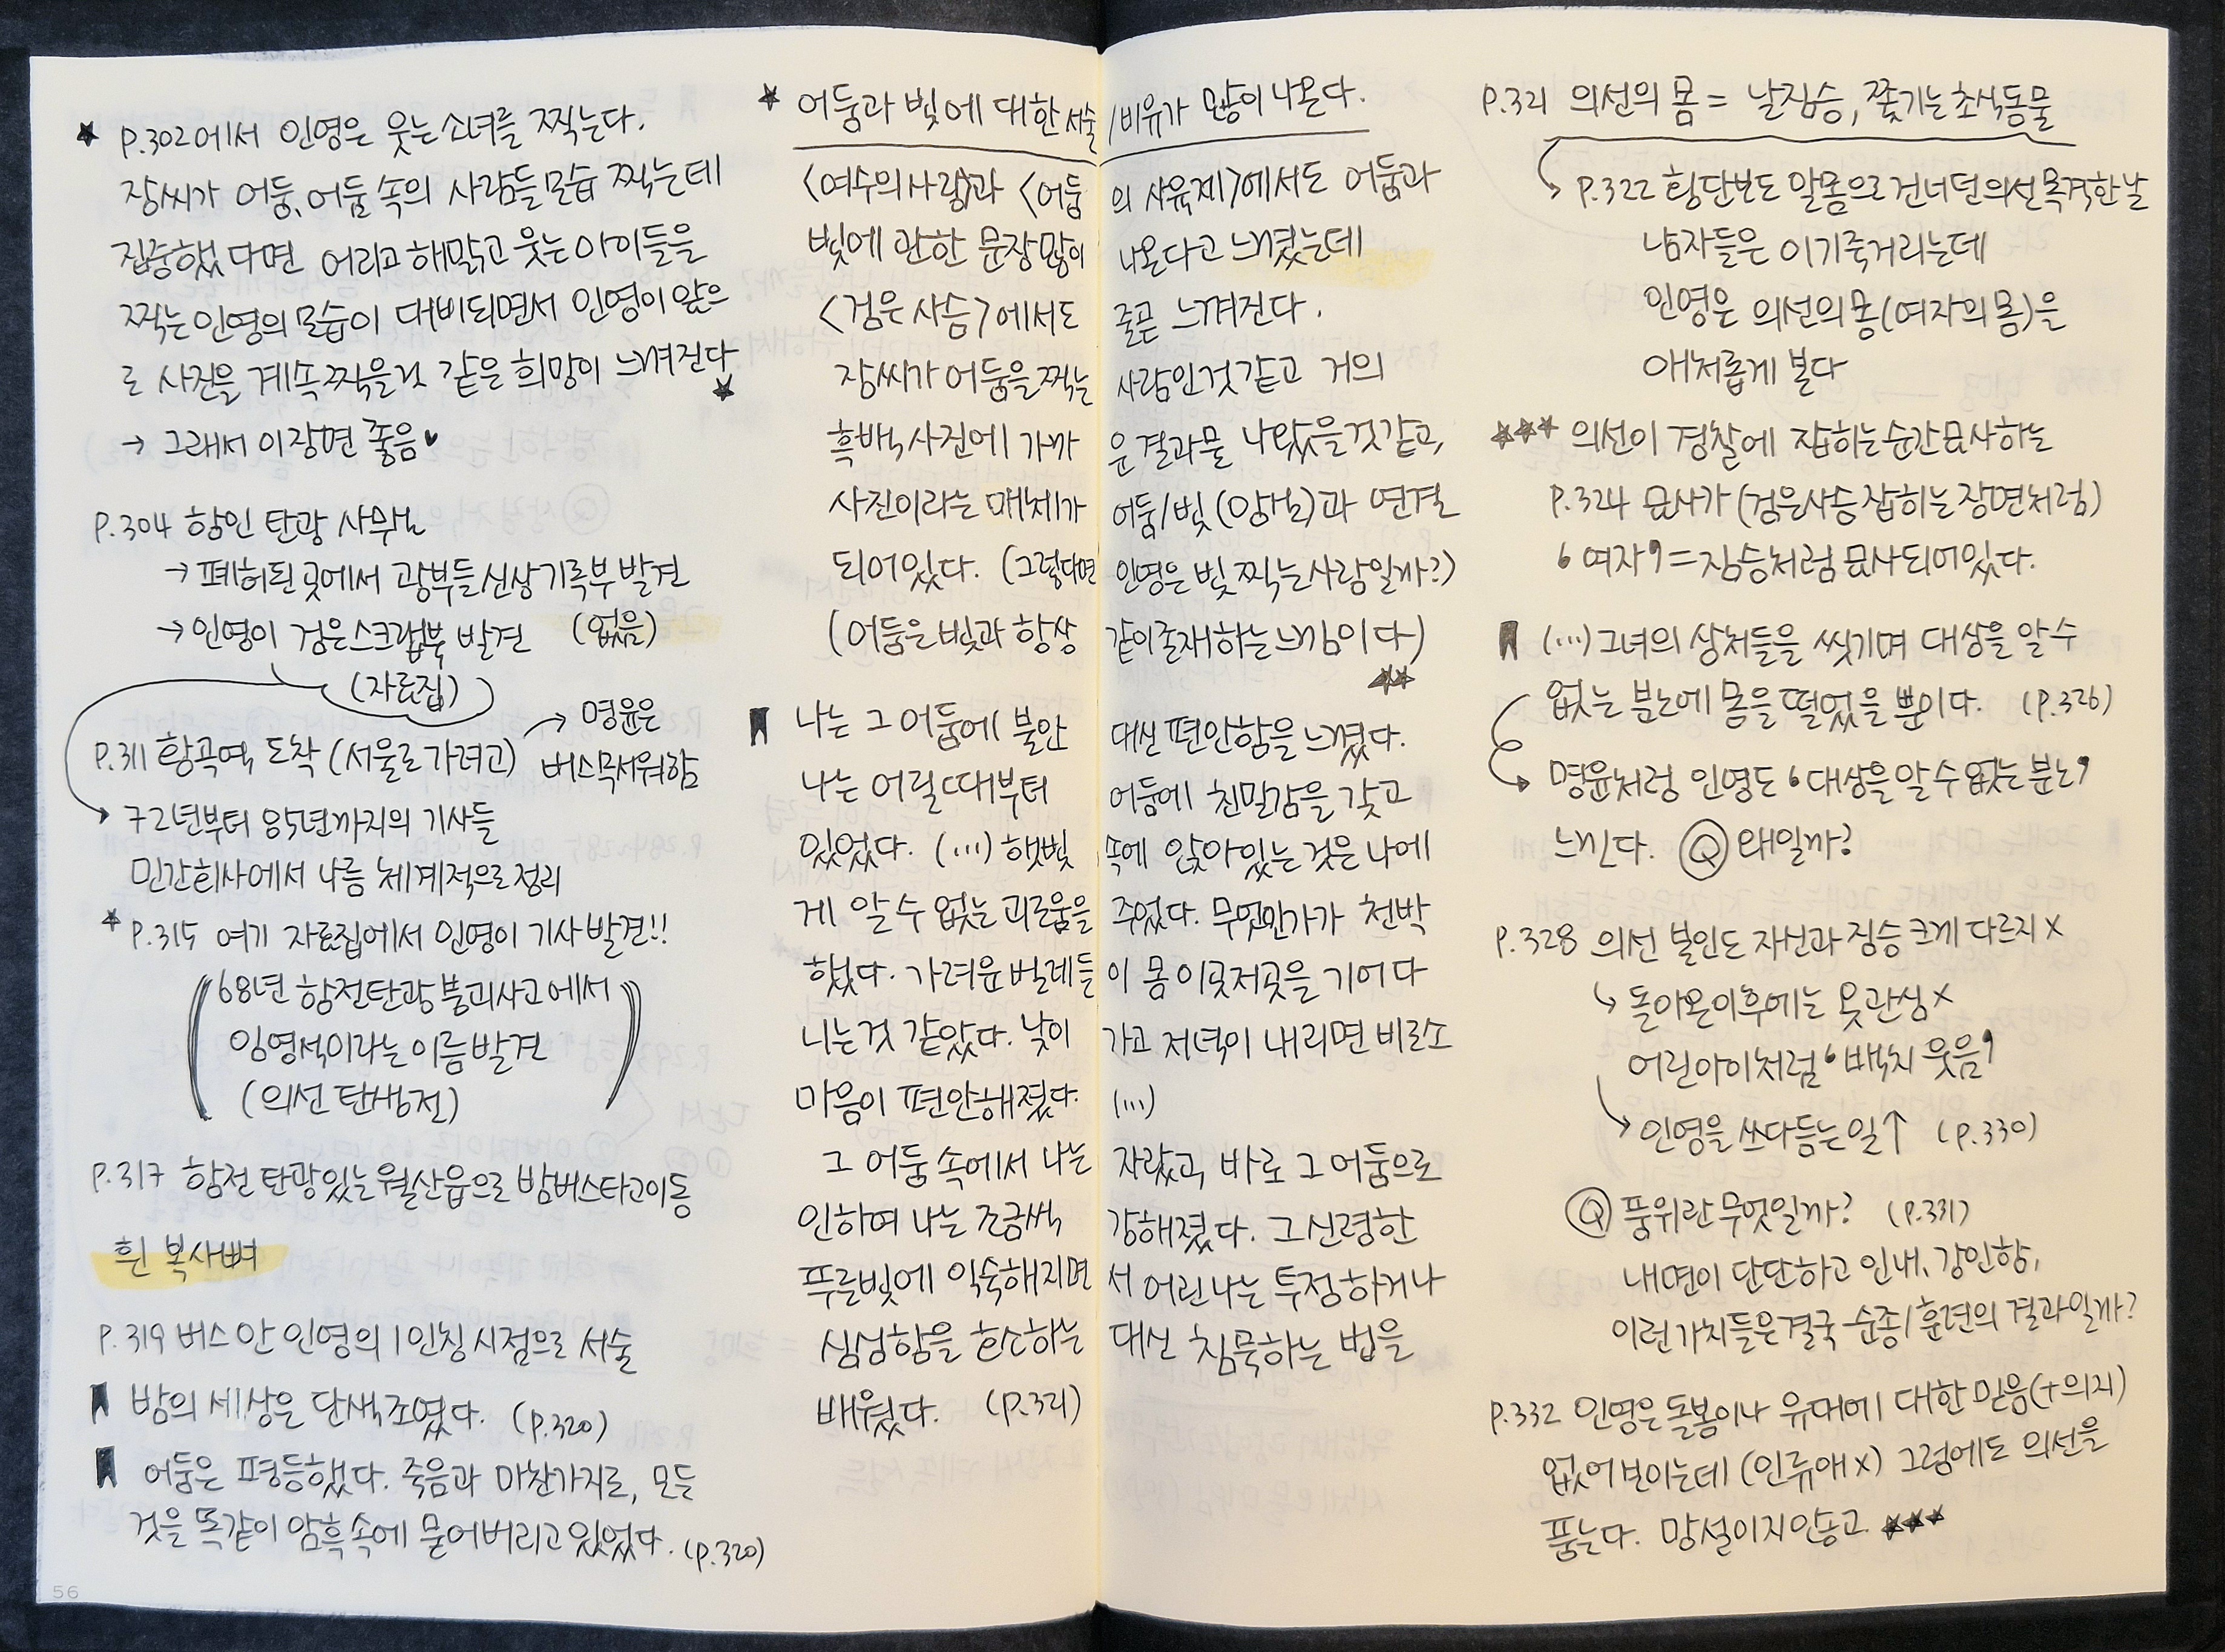 ★ P.302에서 인영은 웃는 소녀를 찍는다.
장씨가 어둠, 어둠 속의 사람들 모습 찍는데
집중했다면 어리고 해맑고 웃는 아이들을
찍는 인영의 모습이 대비되면서 인영이 앞으
로 사진을 계속 찍을 것 같은 희망이 느껴진다 ★
→ 그래서 이 장면 좋음♥
P.304 함인 탄광 사무소
→ 폐허된 곳에서 광부들 신상기록부 발견
(없음)
→ 인영이 검은 스크랩북 발견
(자료집)
P.311 황곡역 도착 (서울로 가려고)
→ 명윤은
버스 무서워함
72년부터 85년까지의 기사들
민간회사에서 나름 체계적으로 정리
★ P.315 여기 자료집에서 인영이 기사 발견!!
(68년 함전탄광 붕괴사고에서
임영석이라는 이름 발견
(의선 탄생 전))
P.317 함전 탄광있는 월산읍으로 밤버스타고 이동
흰 복사뼈
P.319 버스 안 인영의 1인칭 시점으로 서술
밤의 세상은 단색조였다. (P.320)
어둠은 평등했다. 죽음과 마찬가지로, 모든
것을 똑같이 암흑 속에 묻어버리고 있었다. (P.320)
★ 어둠과 빛에 대한 서술/비유가 많이 나온다.
<여수의 사랑>과 <어둠의 사육제>에서도 어둠과
빛에 관한 문장 많이 나온다고 느꼈는데
<검은 사슴>에서도 줄곧 느껴진다.
장씨가 어둠을 찍는 사람인것 같고 거의
흑백사진에 가까운 결과물 나왔을 것 같고,
사진이라는 매체가 어둠/빛(양날)과 연결
되어있다. (그렇다면 인영은 빛 찍는 사람일까?)
(어둠은 빛과 항상 같이 존재하는 느낌이다)
★★
나는 그 어둠에 불안 대신 편안함을 느꼈다.
나는 어릴 때부터 어둠에 친밀감을 갖고
있었다. (...) 햇빛 속에 앉아있는 것은 나에
게 알 수 없는 괴로움을 주었다. 무엇인가가 천박
했다. 가려운 벌레들이 몸 이곳저곳을 기어다
니는 것 같았다. 낮이 가고 저녁이 내리면 비로소
마음이 편안해졌다. (...)
그 어둠 속에서 나는 자랐고, 바로 그 어둠으로
인하여 나는 조금씩 강해졌다. 그 신령한
푸른빛에 익숙해지면서 어린 나는 투정하거나
심심함을 호소하는 대신 침묵하는 법을
배웠다. (P.321)
P.321 의선의 몸 = 날짐승, 쫓기는 초식동물
P.322 횡단보도 알몸으로 건너던 의선 목격한 날
남자들은 이기죽거리는데
인영은 의선의 몸(여자의 몸)을
애처롭게 본다
★★★ 의선이 경찰에 잡히는 순간 묘사하는
P.324 묘사가 (검은사슴 잡히는 장면처럼)
'여자' = 짐승처럼 묘사되어있다.
(...) 그녀의 상처들을 씻기며 대상을 알 수
없는 분노에 몸을 떨었을 뿐이다. (P.326)
명윤처럼 인영도 '대상을 알 수 없는 분노'
느낀다. Ⓠ 왜일까?
P.328 의선 본인도 자신과 짐승 크게 다르지 X
돌아온 이후에는 옷 관심 X
어린아이처럼 '백치 웃음'
인영을 쓰다듬는 일↑ (P.330)
Ⓠ 품위란 무엇일까? (P.331)
내면이 단단하고 인내, 강인함,
이런 가치들은 결국 순종/훈련의 결과일까?
P.332 인영은 돌봄이나 유대에 대한 믿음(+의지)
없어 보이는데 (인류애X) 그럼에도 의선을
품는다. 망설이지 않고 ★★★
56